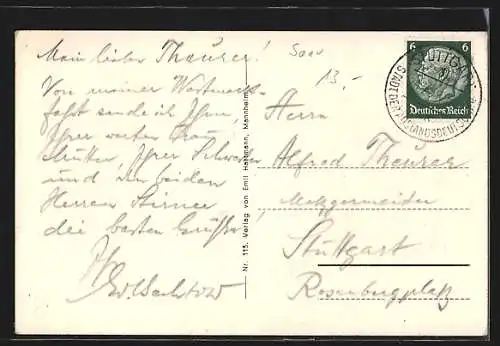 Mein lieber Theurer!
Von meiner
sende ich Ihnen,
Ihrer werten Frau
Ihrer
und den beiden
Herren
die besten Grüße
Ihr
Saar
13,-
Herrn
Alfred Theurer
Metzgermeister
Stuttgart
Rosenbergplatz
Nr. 115. Verlag von Emil Hartmann, Mannheim
6 6
Deutsches Reich
STUTTGART
STADT DER AUSLANDSDEUTSCHEN